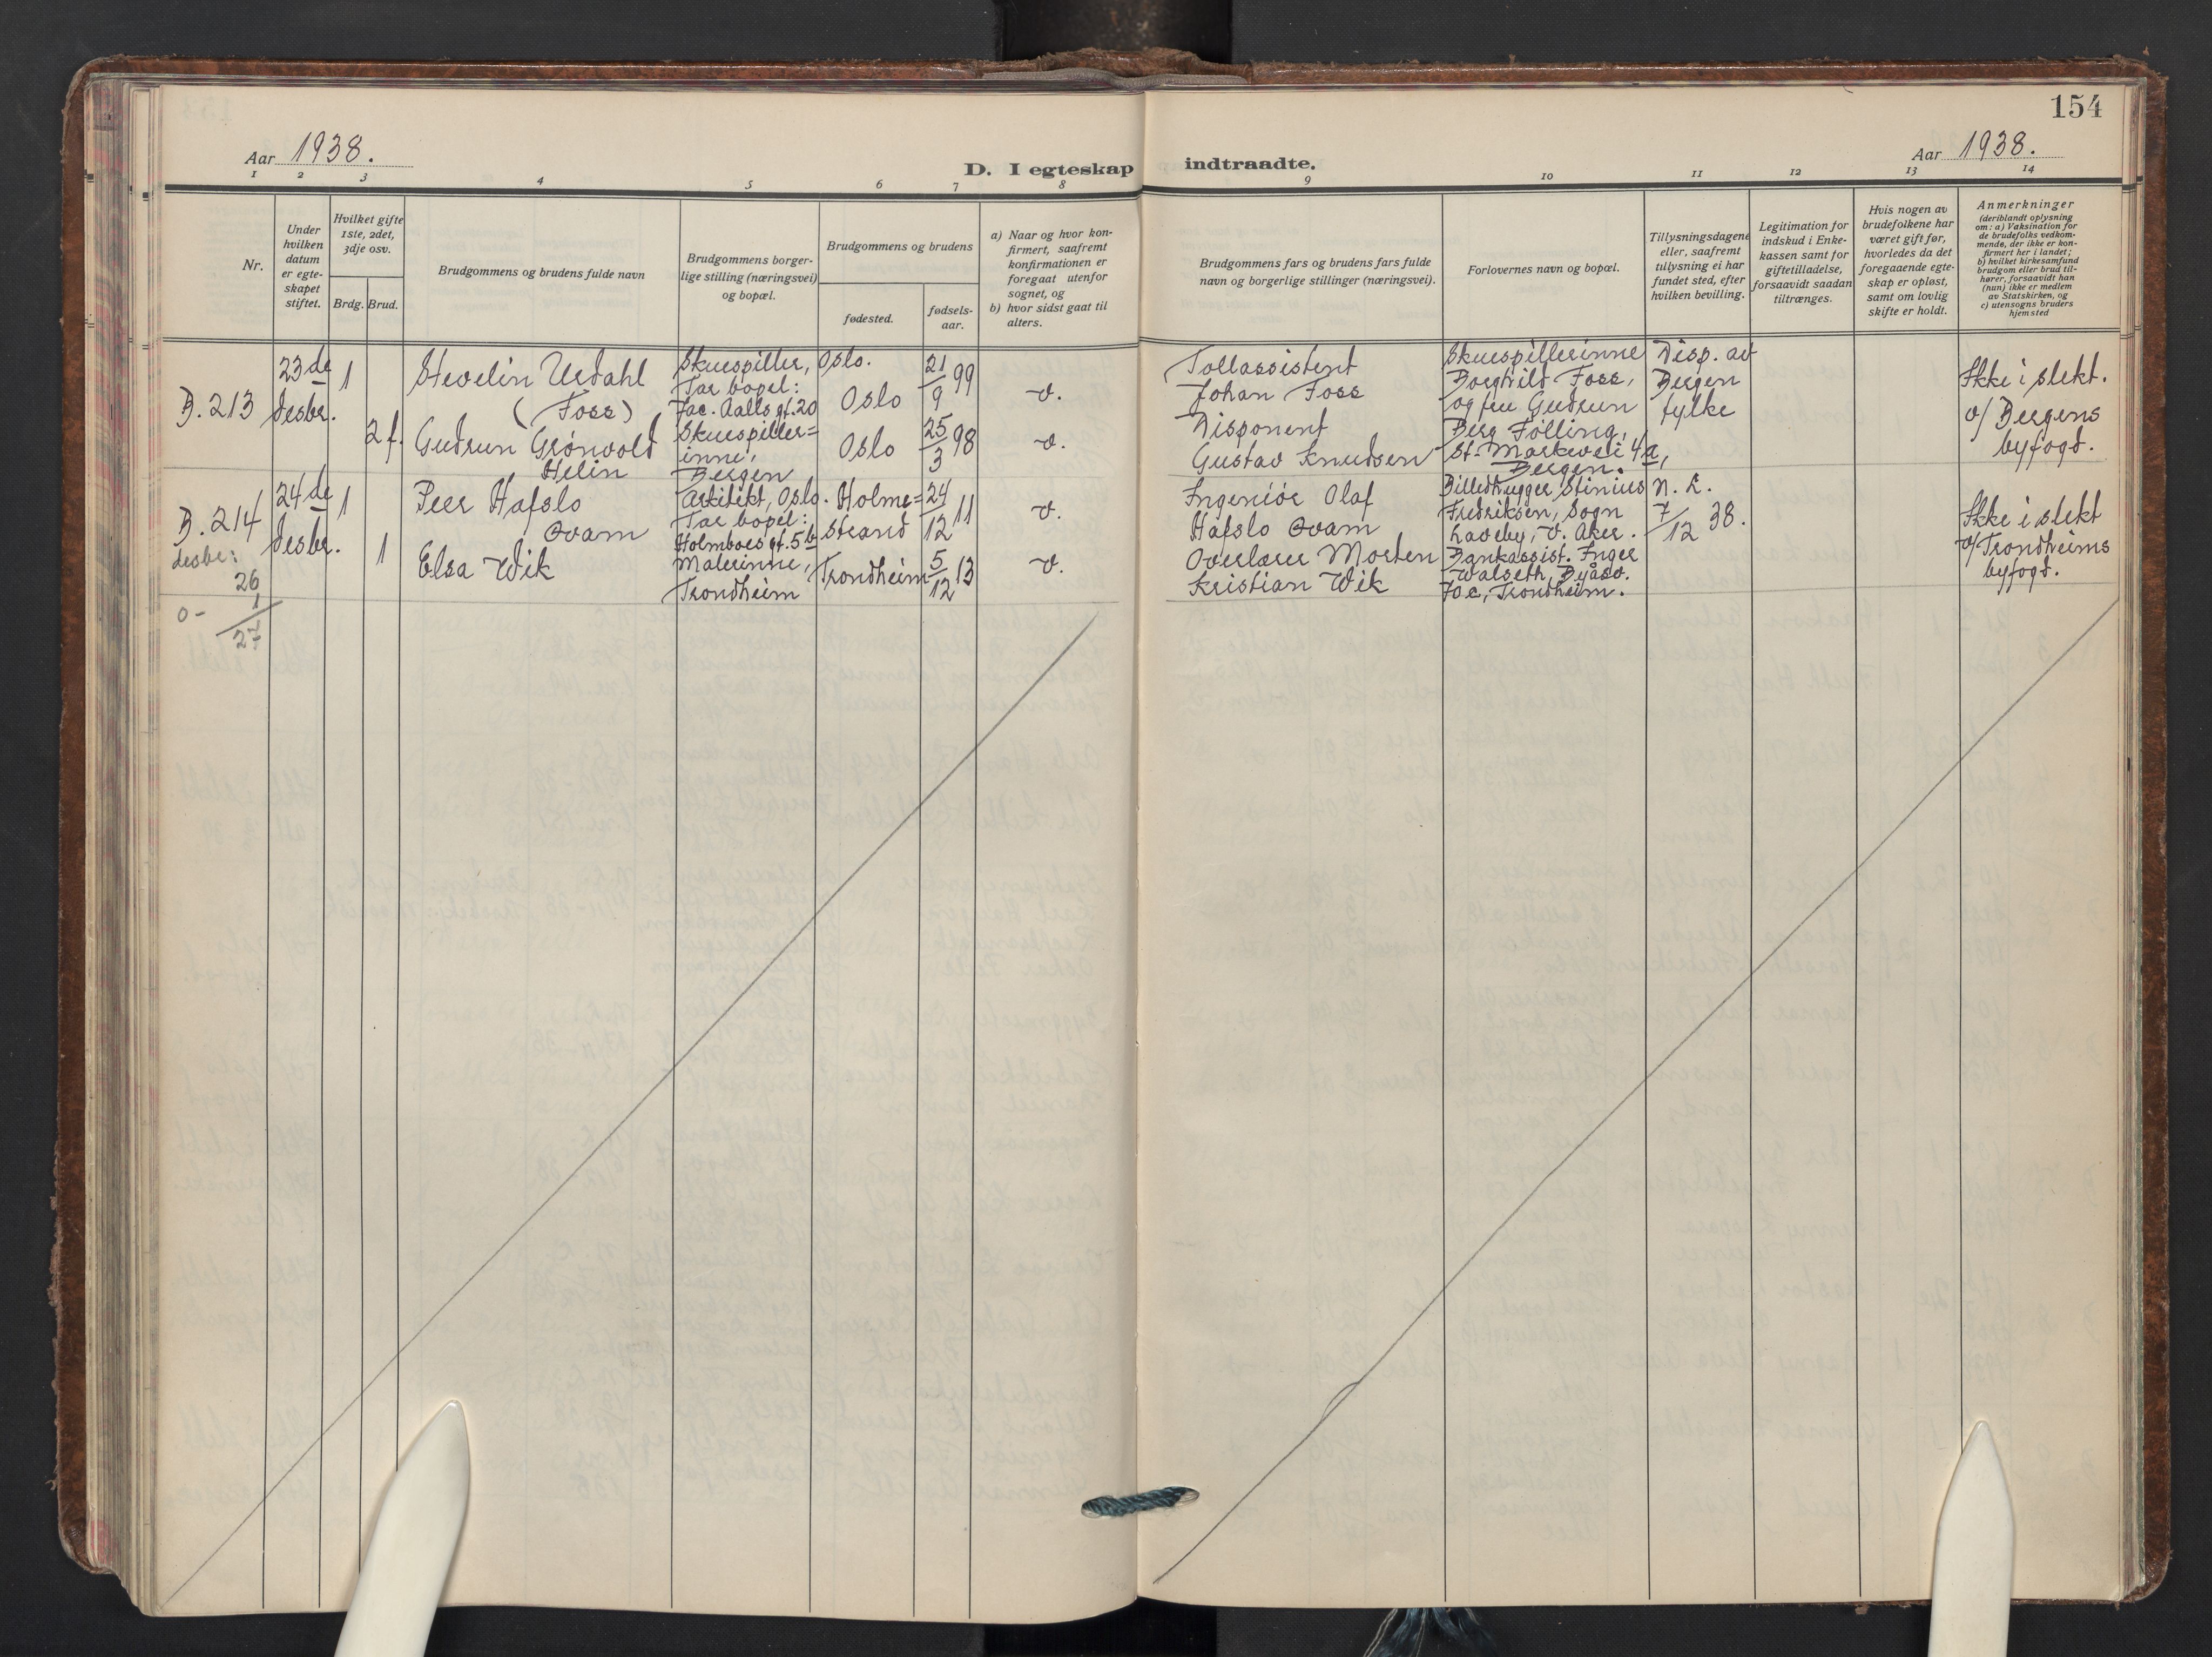 154
Aar 1938.
D. I egteskap indtraadte.
Aar 1938.
1 2 3 4 5 6 7 8 9 10 11 12 13 14
Nr.
Under
hvilken
datum
er egte-
skapet
stiftet.
Hvilket gifte
1ste, 2det,
3dje osv.
Brdg. Brud.
Brudgommens og brudens fulde navn
Brudgommens borger-
lige stilling (næringsvei)
og bopæl.
Brudgommens og brudens
fødested.
fødsels-
aar.
a) Naar og hvor kon-
firmert, saafremt
konfirmationen er
foregaat utenfor
sognet, og
b) hvor sidst gaat til
alters.
Brudgommens fars og brudens fars fulde
navn og borgerlige stillinger (næringsvei).
Forlovernes navn og bopæl.
Tillysningsdagene
eller, saafremt
tillysning ei har
fundet sted, efter
hvilken bevilling.
Legitimation for
indskud i Enke-
kassen samt for
giftetilladelse,
forsaavidt saadan
tiltrænges.
Hvis nogen av
brudefolkene har
været gift før,
hvorledes da det
foregaaende egte-
skap er opløst,
samt om lovlig
skifte er holdt.
Anmerkninger
(deriblandt oplysning
om: a) Vaksination for
de brudefolks vedkom-
mende, der ikke er kon-
firmert her i landet;
b) hvilket kirkesamfund
brudgom eller brud til-
hører, forsaavidt han
(hun) ikke er medlem
av Statskirken, og
c) utensogns bruders
hjemsted
B. 213
23de
desbr.
1
Stevelin Urdahl
(Foss)
Skuespiller, Oslo.
Tar bopel:
Jac. Aalls gt. 20
Oslo
21/9 99
v.
Tollassistent
Johan Foss
Skuespillerinne
Borghild Foss,
og fru Gudrun
Berg Følling,
St. Markevei 4a,
Bergen.
Disp. av
Bergen
fylke
Ikke i slekt.
v/ Bergens
byfogd.
2 f.
Gudrun Grønvold
Helin
Skuespiller=
inne,
Bergen
Oslo
25/3 98
v.
Disponent
Gustav Knudsen
B. 214
24de
desbr.
1
Peer Hafslo
Qvam
Arkitekt, Oslo.
Tar bopel:
Holmboes gt. 5b
Holme=
strand
24/12 11
v.
Ingeniør Olaf
Hafslo Qvam
Billedhugger Stinius
Fredriksen, Sogn
haveby, V. Aker.
Bankassist. Inger
Walseth, Byåsv.
70c, Trondheim.
n. L.
7/12 38.
Ikke i slekt
v/ Trondheims
byfogd.
1
Elsa Wik
Malerinne,
Trondheim
Trondheim
5/12 13
v.
Overlærer Morten
Kristian Wik
desbr:
26
o- 1
27